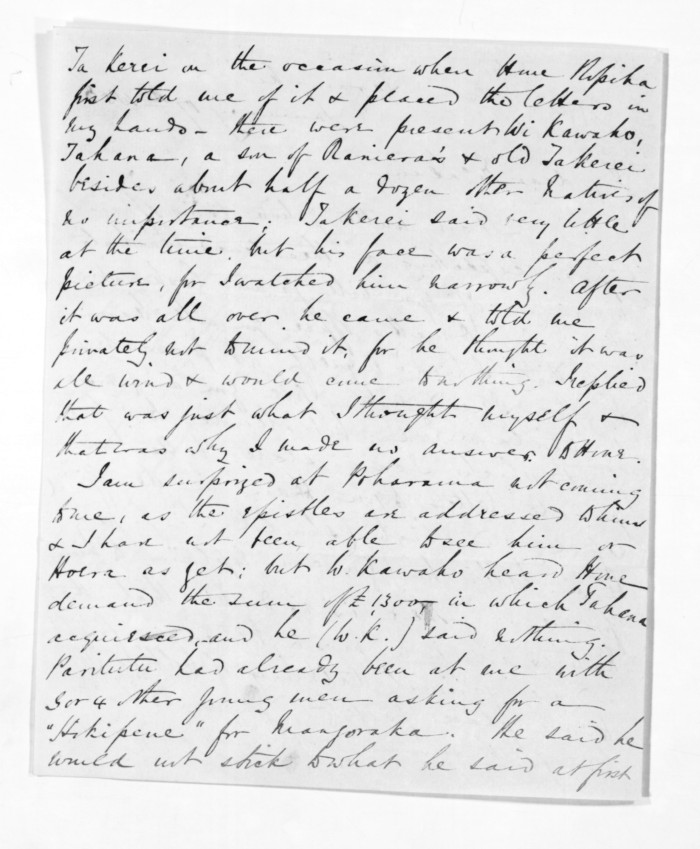 Ta Kerei on the occasion when Hone Ropiha
first told me of it & placed the letters in
my hands – there were present Wi Kawaho,
Tahana, a son of Raniera's & old Takerei
besides about half a dozen other Natives of
no importance; Takerei said very little
at the time but his face was a perfect
picture, for I watched him narrowly. After
it was all over he came & told me
privately not to mind it, for he thought it was
all wind & would come to nothing. I replied
that was just what I thought myself &
that was why I made no answer to Hone.
I am surprized at Poharama not coming
to me, as the epistles are addressed to him
& I have not been able to see him or
Hoera as yet; but W. Kawaho heard Hone
demand the sum of £1300 – in which Tahana
acquiesced, and he (W.K.) said nothing.
Paritutu had already been at me with
3 or 4 other young men asking for a
"Hokipene" for Mangoraka. He said he
would not stick to what he said at first